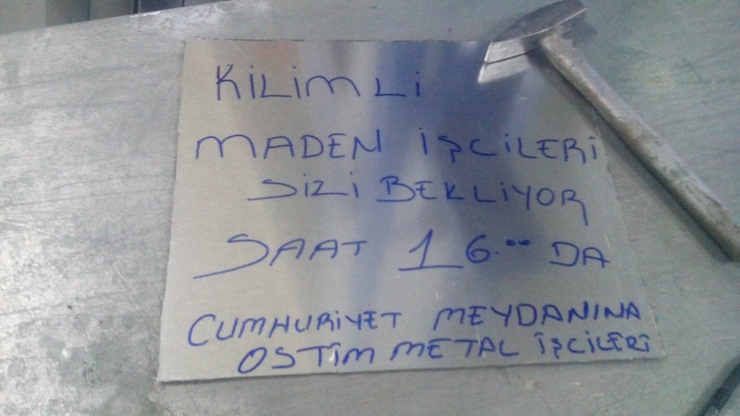 KiLiMLi
MADEN İŞCiLERi
SiZi BEKLiYOR
SAAT 16.00 DA
CUMHURiYET MEYDANINA
OSTiM METAL İŞCİLERİ